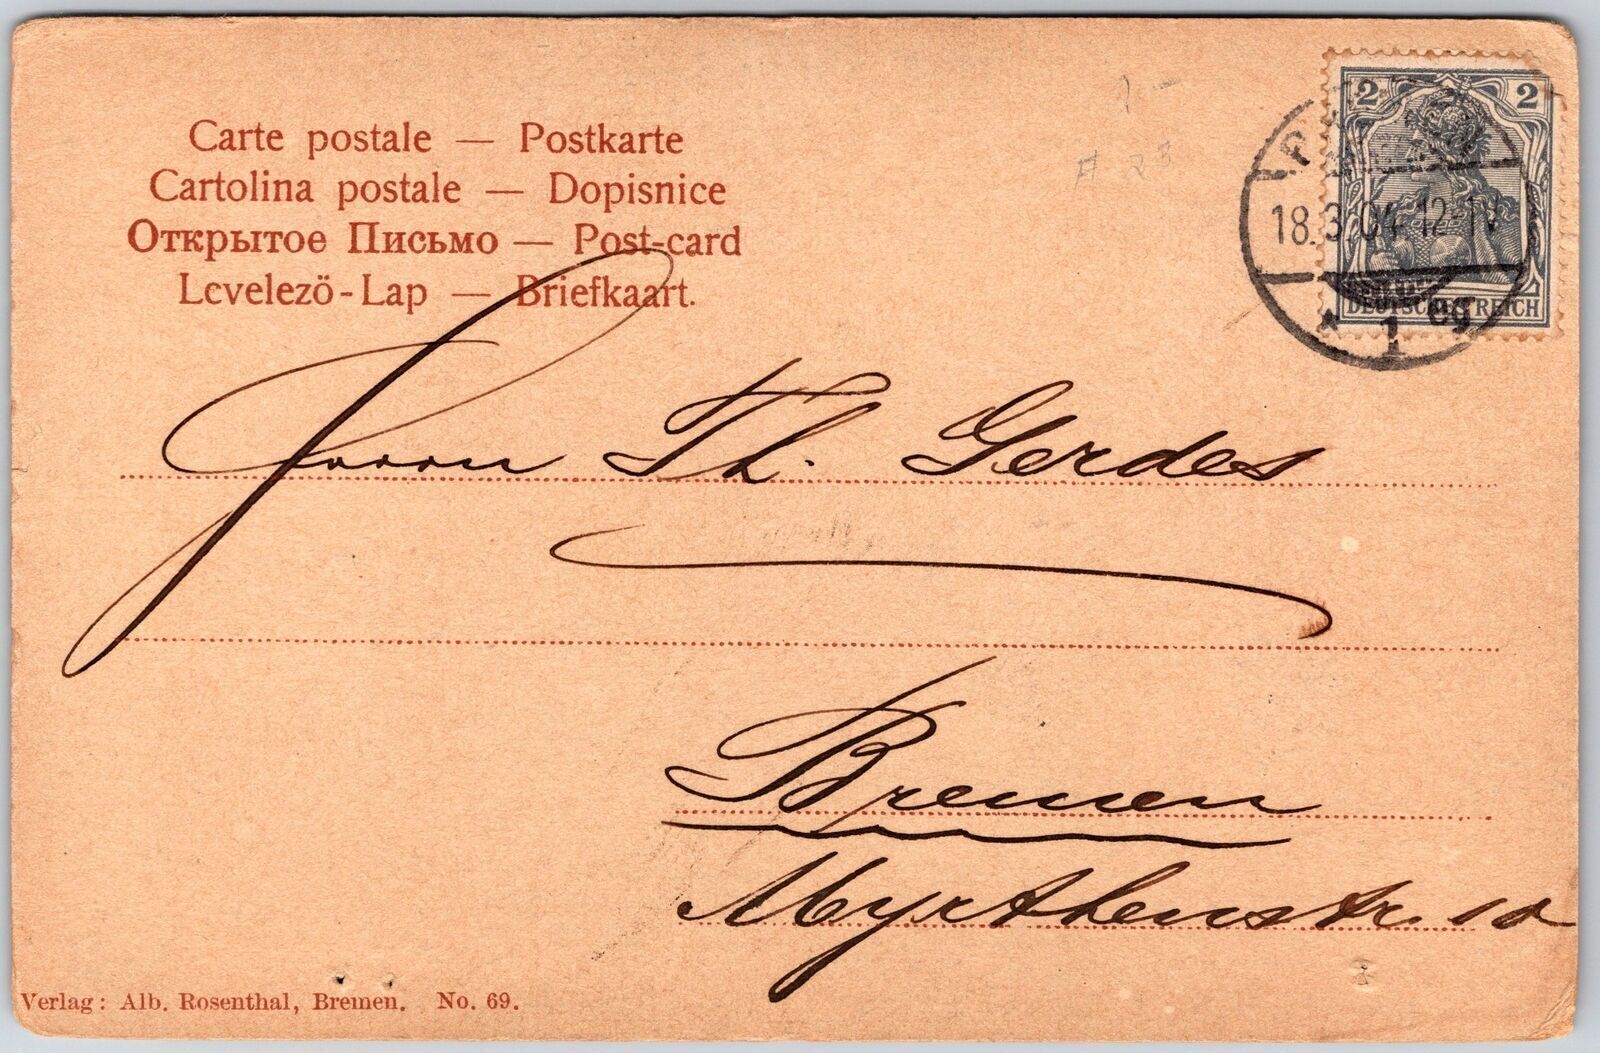 Carte postale — Postkarte
Cartolina postale — Dopisnice
Открытое Письмо — Post-card
Levelezö-Lap — Briefkaart.
2 2
18.3.04 12-1N
DEUTSCHES REICH
* 1 eg
Herrn Th. Gerdes
Bremen
Myrthenstr. 10
Verlag: Alb. Rosenthal, Bremen. No. 69.